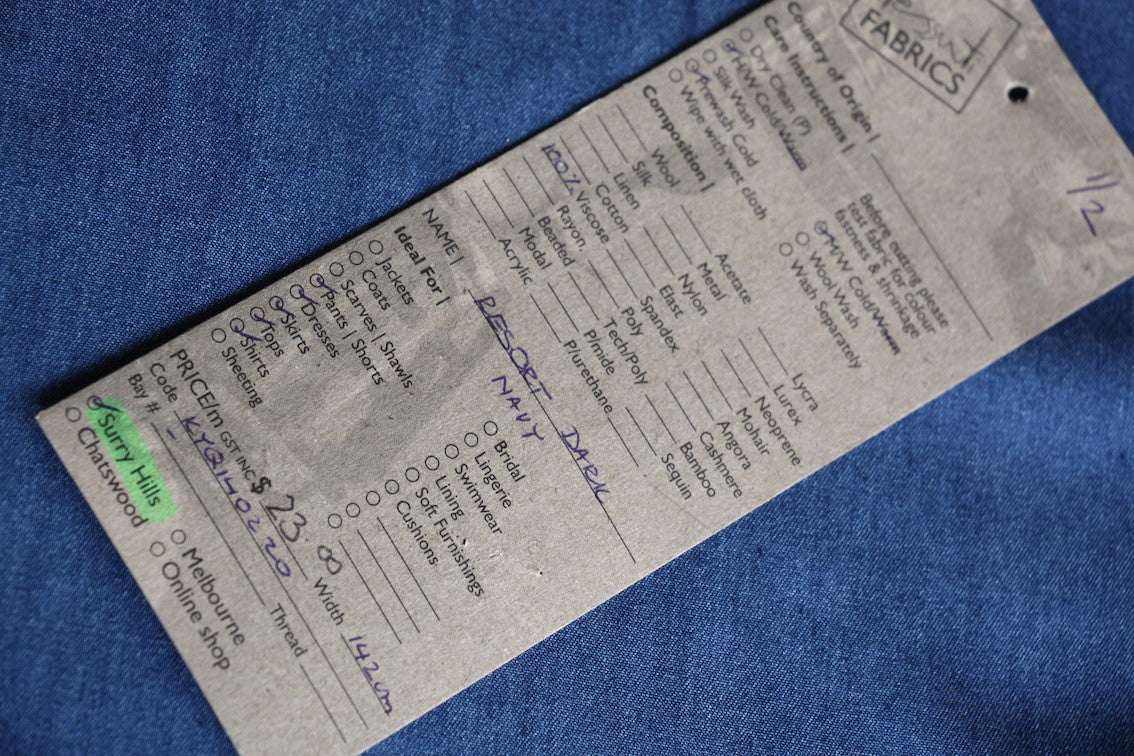 FABRICS
1/2
Country of Origin |
Care Instructions |
Dry Clean (P)
H/W Cold/Warm
Silk Wash
Prewash Cold
Wipe with wet cloth
Before cutting please
test fabric for colour
fastness & shrinkage
M/W Cold/Warm
Wool Wash
Wash Separately
Composition |
Wool
Silk
Linen
Cotton
100% Viscose
Rayon
Beaded
Modal
Acrylic
Acetate
Metal
Nylon
Elast.
Spandex
Poly
Tech/Poly
P/mide
P/urethane
Lycra
Lurex
Neoprene
Mohair
Angora
Cashmere
Bamboo
Sequin
NAME | RESORT DARK
NAVY
Ideal For |
Jackets
Coats
Scarves | Shawls
Pants | Shorts
Dresses
Skirts
Tops
Shirts
Sheeting
Bridal
Lingerie
Swimwear
Lining
Soft Furnishings
Cushions
PRICE/m GST INC $ 23.00 Width 142cm
Code
Bay # - Thread
Surry Hills
Chatswood
Melbourne
Online shop